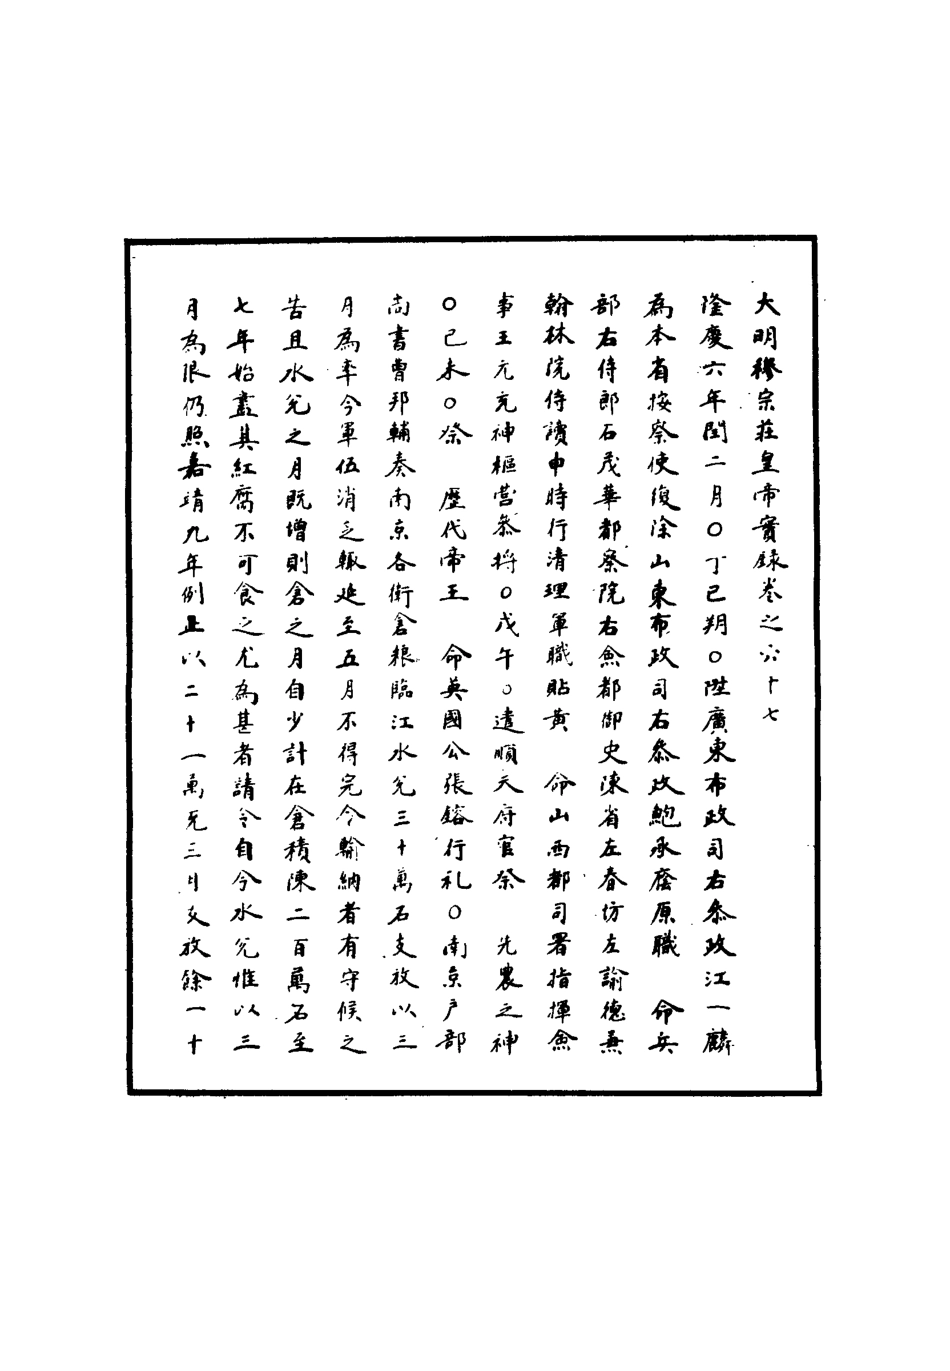 大明穆宗莊皇帝實錄卷之六十七
隆慶六年閏二月○丁巳朔○陞廣東布政司右叅政江一麟
為本省按察使復除山東布政司右叅政鮑承廕原職　命兵
部右侍郎石茂華都察院右僉都御史陳省左春坊左諭德兼
翰林院侍讀申時行清理軍職貼黃　命山西都司署指揮僉
事王元充神樞營叅將○戊午○遣順天府官祭　先農之神
○己未○祭　歷代帝王　命英國公張鎔行礼○南京户部
尚書曹邦輔奏南京各衛倉粮臨江水兌三十萬石支放以三
月為率今軍伍消乏輒延至五月不得完令輸納者有守候之
苦且水兌之月既增則倉之月自少計在倉積陳二百萬石至
七年始盡其紅腐不可食之尤為甚者請令自今水兌惟以三
月為限仍照嘉靖九年例止以二十一萬充三月支放餘一十